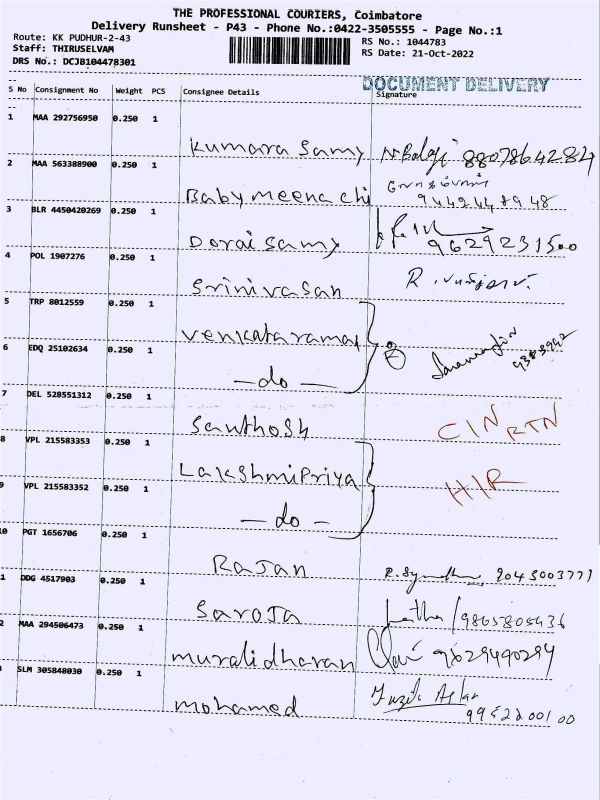 THE PROFESSIONAL COURIERS, Coimbatore
Delivery Runsheet - P43 - Phone No.:0422-3505555 - Page No.:1
Route: KK PUDHUR-2-43
RS No.: 1044783
Staff: THIRUSELVAM
RS Date: 21-Oct-2022
DRS No.: DCJB104478301
DOCUMENT DELIVERY
S No Consignment No Weight PCS Consignee Details Signature
1 MAA 292756950 0.250 1
Kumara Samy N. Balaji 8807864284
2 MAA 563388900 0.250 1
Baby meena chi
3 BLR 4450420269 0.250 1
Dorai Samy 9629231500
4 POL 1907276 0.250 1
Srinivasan R.
5 TRP 8012559 0.250 1
Venkataraman
6 EDQ 25102634 0.250 1
- do -
7 DEL 528551312 0.250 1
Santhosh CIN RTN
8 VPL 215583353 0.250 1
Lakshmipriya H/R
9 VPL 215583352 0.250 1
- do -
10 PGT 1656706 0.250 1
Rajan R. 9045003771
1 DDG 4517903 0.250 1
Saroja 9865805436
2 MAA 294506473 0.250 1
muralidharan 9629490294
SLM 305848030 0.250 1
mohamed
9952200100